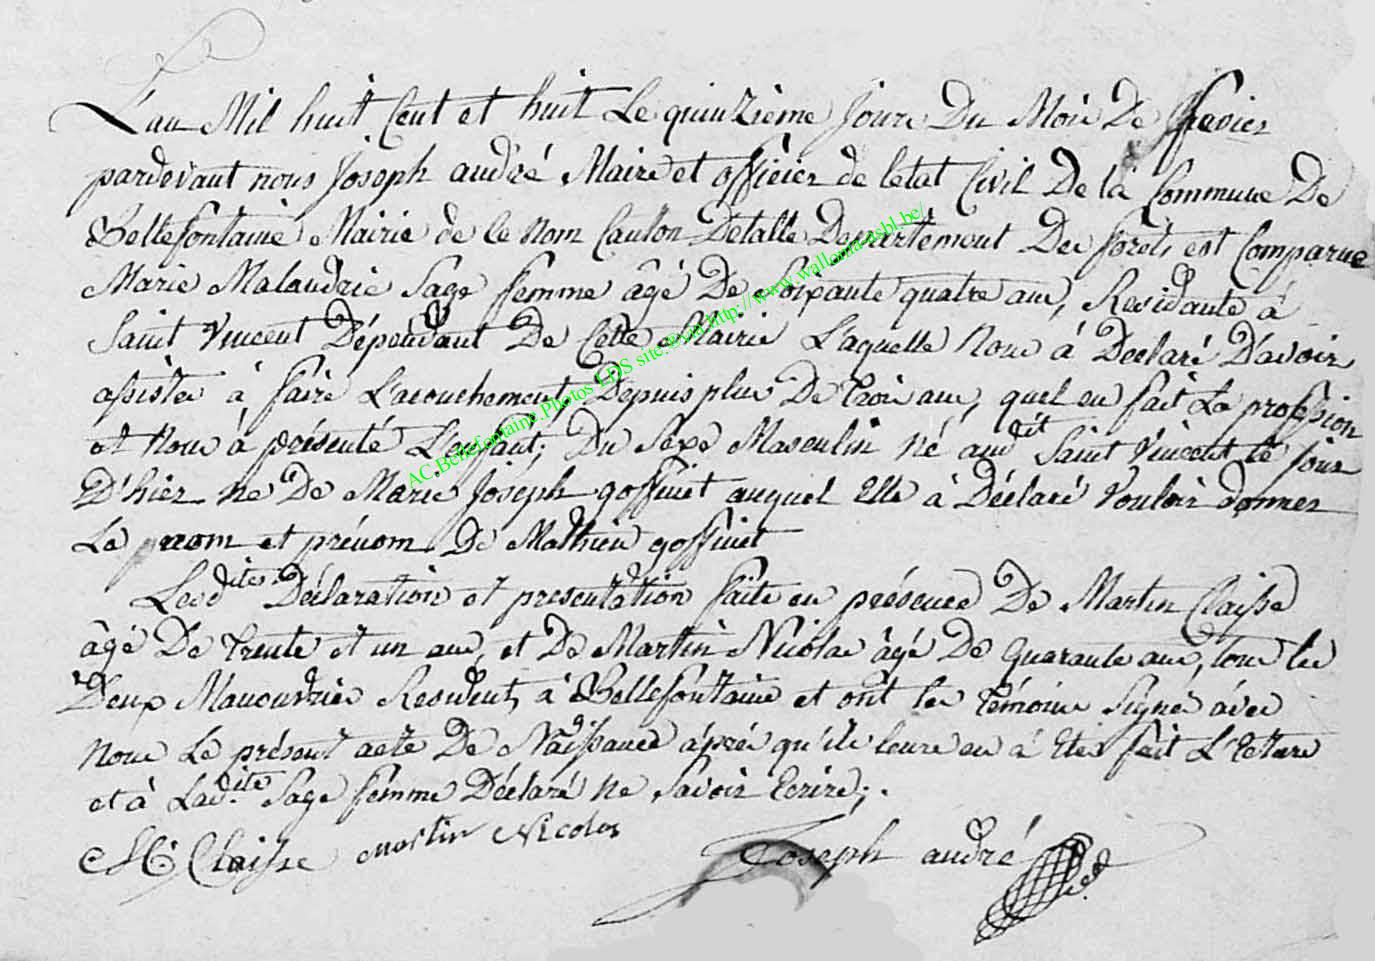 L'an Mil huit Cent et huit Le quinzième Jour Du Mois De fevier
pardevant nous Joseph andré Maire et officier de letat Civil De la Commune De
Bellefontaine Mairie de ce nom Canton Detalle Departement Des forets est Comparue
Marie Malandrie Sage femme âgé De Soixante quatre ans, Residante à
Saint Vincent Dépendant De Cette Mairie L'aquelle Nous à Declaré D'avoir
assister à faire L'acouchement Depuis plus De trois ans, quel en fait La profession
et Nous à présenté L'enfant, Du Sexe Masculin né audit Saint Vincent le jour
D'hier né De Marie Joséph goffinet auquel Elle à Déclaré Vouloir donner
Le nom et prénom De Mathieu goffinet
Lesdites Déclaration et presentation faite en présence De Martin Claisse
âgé De trente et un ans, et De Martin Nicolas âgé De quarante ans, tous les
Deux Manouvrier Resident, à Bellefontaine et ont les témoins Signé avec
Nous Le présent acte De Naissance aprés qu'ils leurs en à Eter fait L'Ecture
et à Ladite Sage femme Déclaré ne Savoir Ecrire;.
M: Claisse Martin Nicolas Joseph andré
AC.Bellefontaine.Photos LDS site.©via.http://www.wallonia-asbl.be/